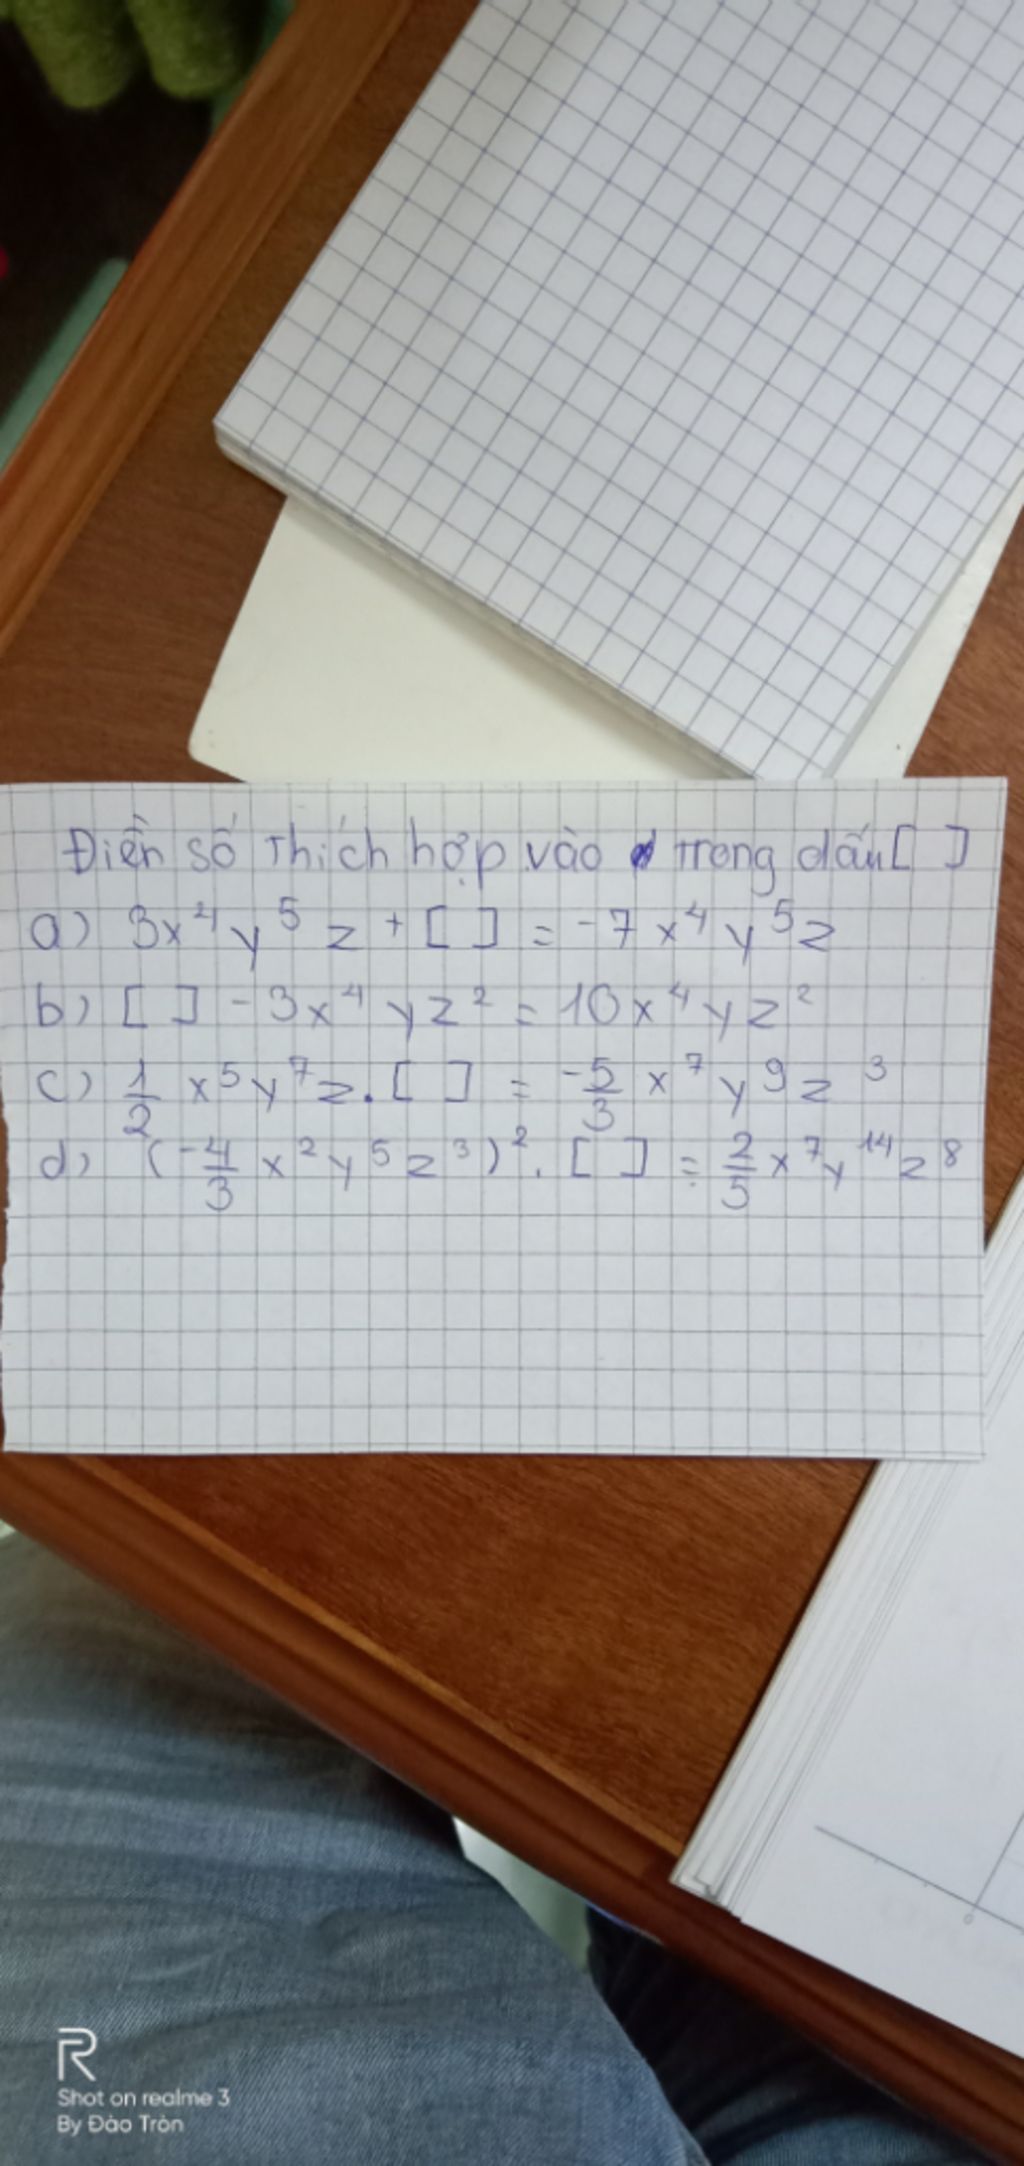 Điền số thích hợp vào trong dấu [ ]
a) 3x⁴y⁵z + [ ] = -7x⁴y⁵z
b) [ ] - 3x⁴yz² = 10x⁴yz²
c) 1/2 x⁵y⁷z . [ ] = -5/3 x⁷y⁹z³
d) (-4/3 x²y⁵z³)² . [ ] = 2/5 x⁷y¹⁴z⁸
R
Shot on realme 3
By Đào Tròn